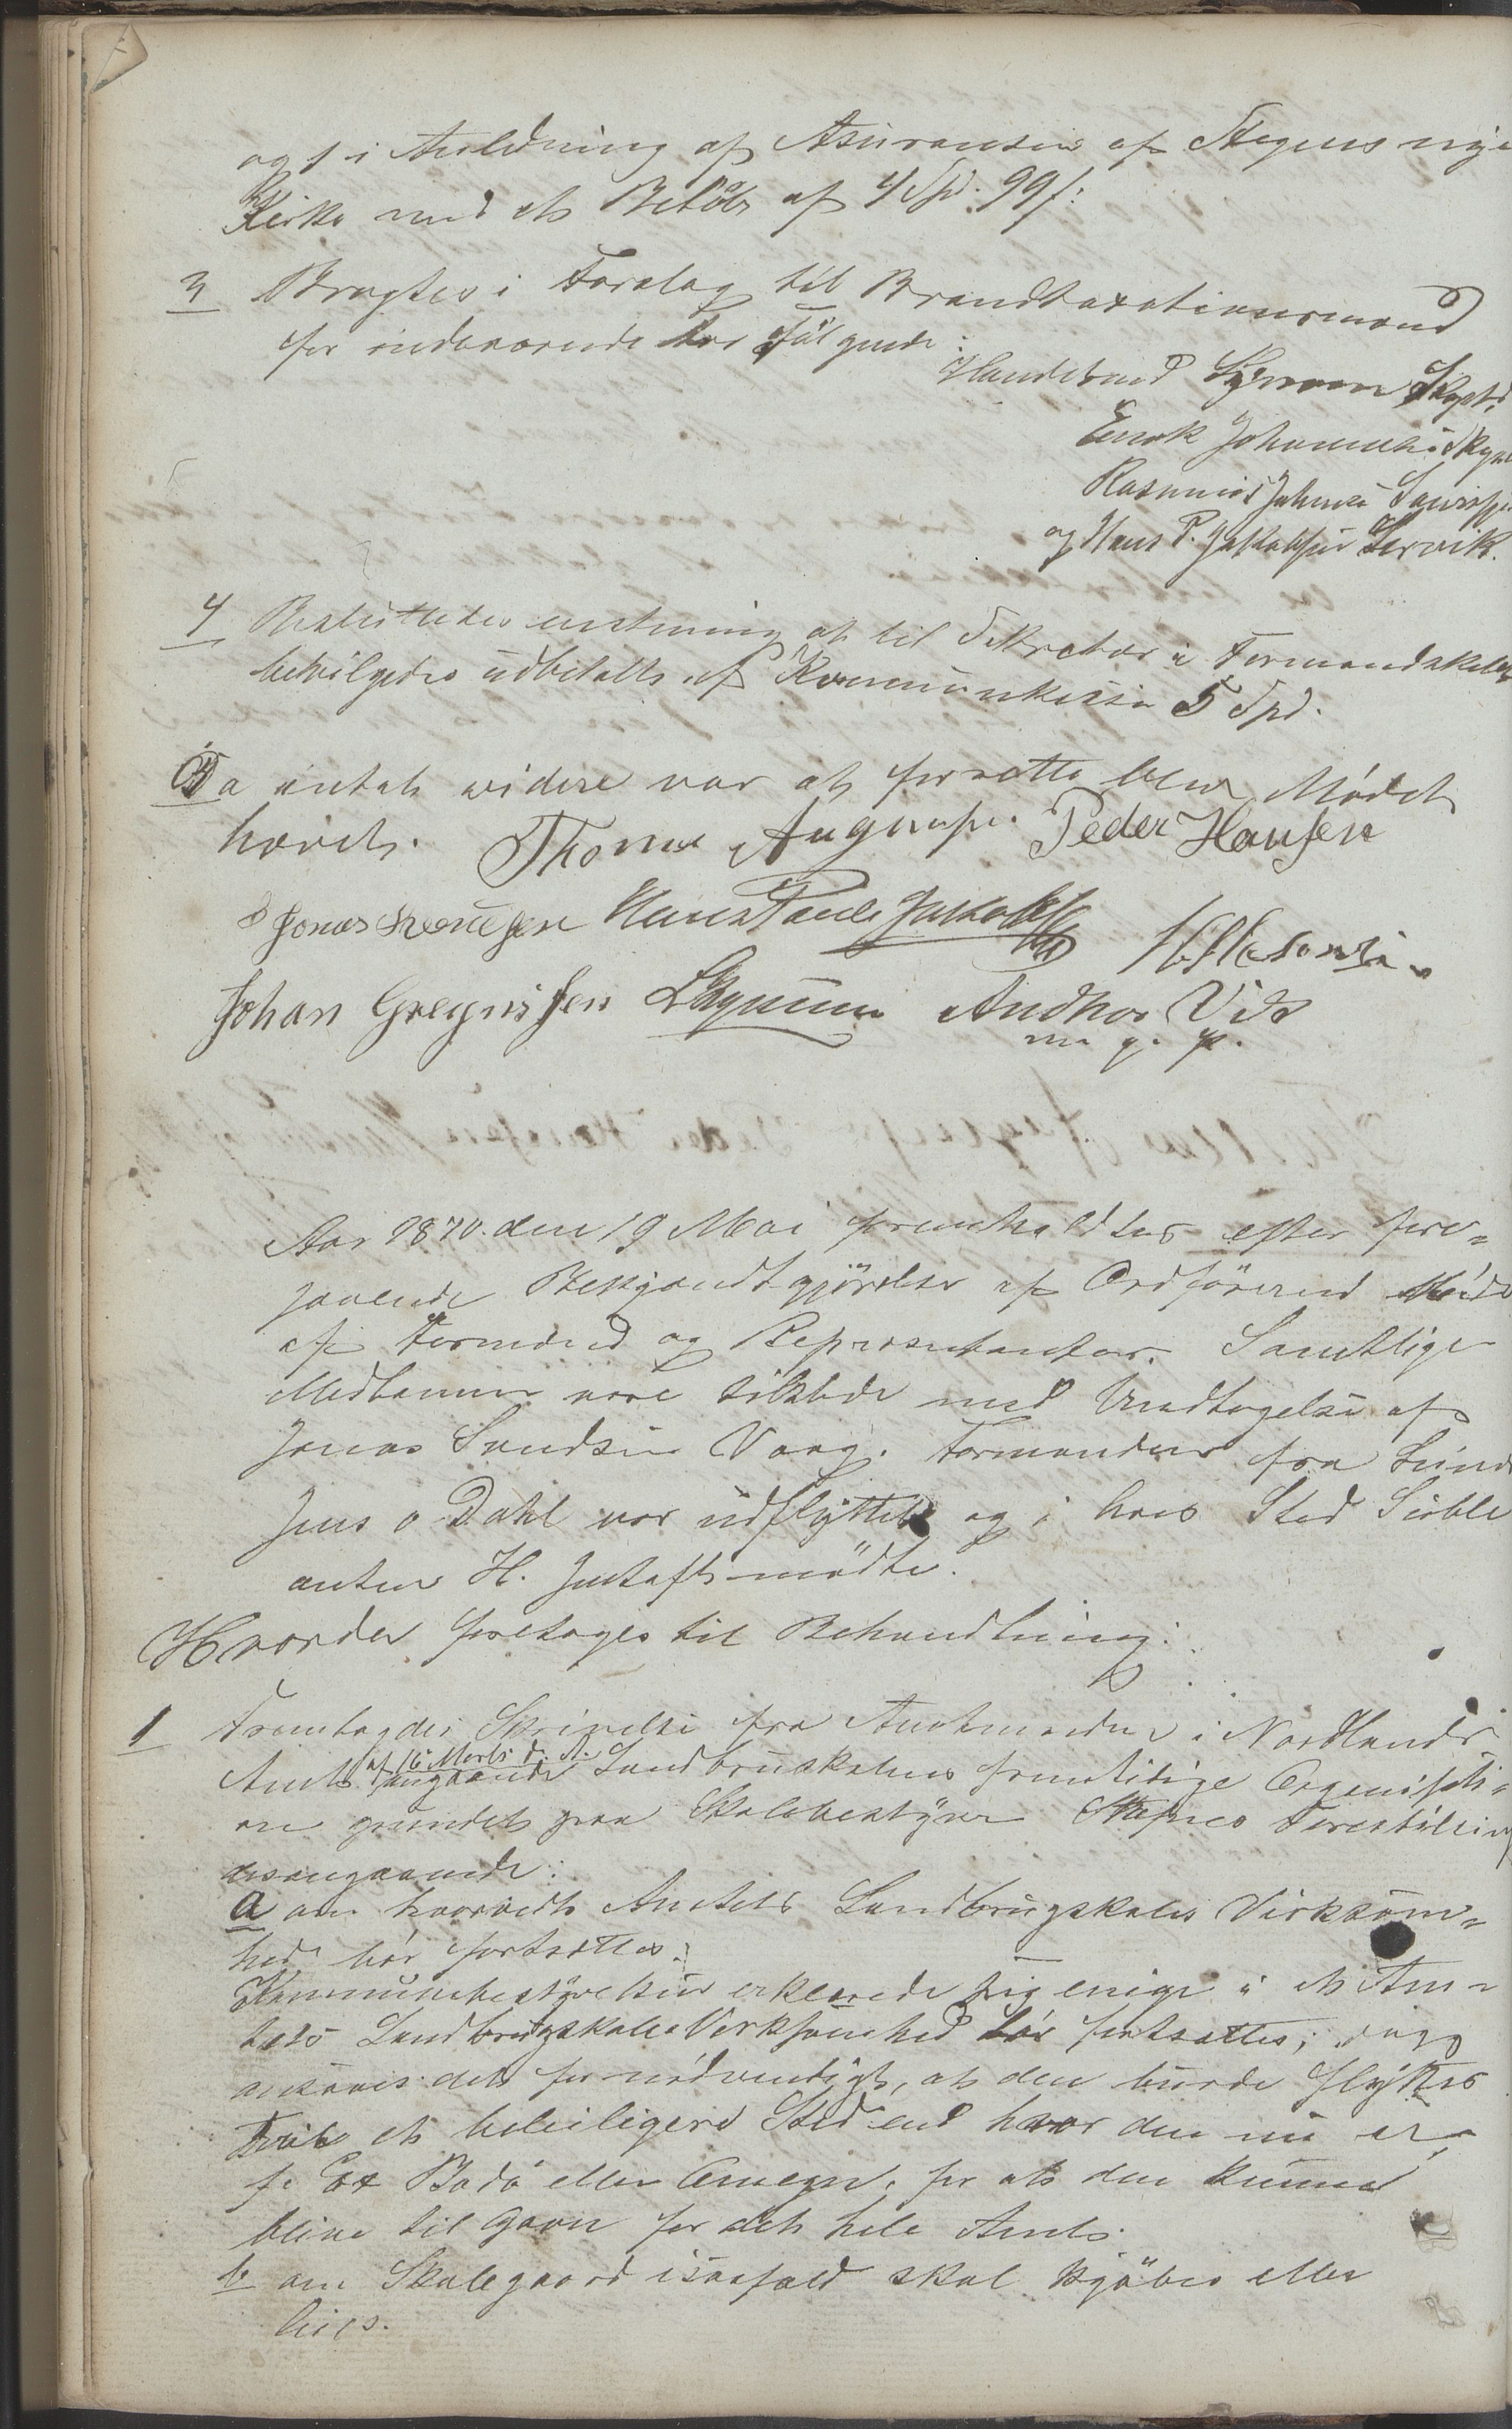 og s i Anledning af Assuransen af Stegens nye
Kirke med et Beløb af 4 Spd. 99 s:
3 Bragtes i Forslag til Brandtaxationsmænd
for indeværende Aar Følgende:
Handelsmd
Enok Johannesen
Rasmus Johnsen
og Hans P. Jakobsen Lervik.
4 Besluttedes enstemig at til Sekretær i Formandskabet
bevilgedes udbetalt af Kommunekassen 5 Spd.
Da intet videre var at forrette blev Mødet
hævet. Thomas Peder Hansen
Jonas Hans Paul Jakobsen
Johan Gregusen Andreas
m. p. p.
Aar 1870 den 19 Mai fremholdtes efter fore-
gaaende Bekjendtgjørelse af Ordføreren Møde
af Formænd og Representanter. Samtlige
Medlemmer vare tilstede med Undtagelse af
Jonas Vaag. Formanden fra
Jens o Dahl var udflyttet og i hans Sted
anten H. Justafs mødte.
Hvorda foretages til Behandling:
1 Fremtagdes Skrivelse fra Amtmanden i Nordlands
Amt af 16 Marts d. A. angaaende Landbruskolens fremtidige Organisati-
on grundet paa Skolebestyrer Forestilling
desangaaende:
a om hvorvidt Amtets Landbrugskoles Virksom-
hed bør fortsættes.
Kommunebestyrelsen erklerede sig enige i at Am-
tets Landbrugskoles Verksomhed bør fortsættes; dog
ansaaes det for nødvendigt, at den burde flyttes
til et beleiligere Sted end hvor den nu er,
f. Ex Bodø eller Omegn, for at den kunne
blive til Gavn for det hele Amt.
b om Skolegaard isaafald skal kjøbes eller
leies.